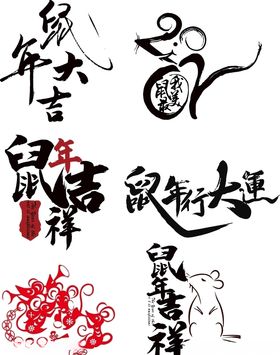 鼠年大吉
我是鼠最
鼠年吉祥
鼠年行大運
鼠年吉祥